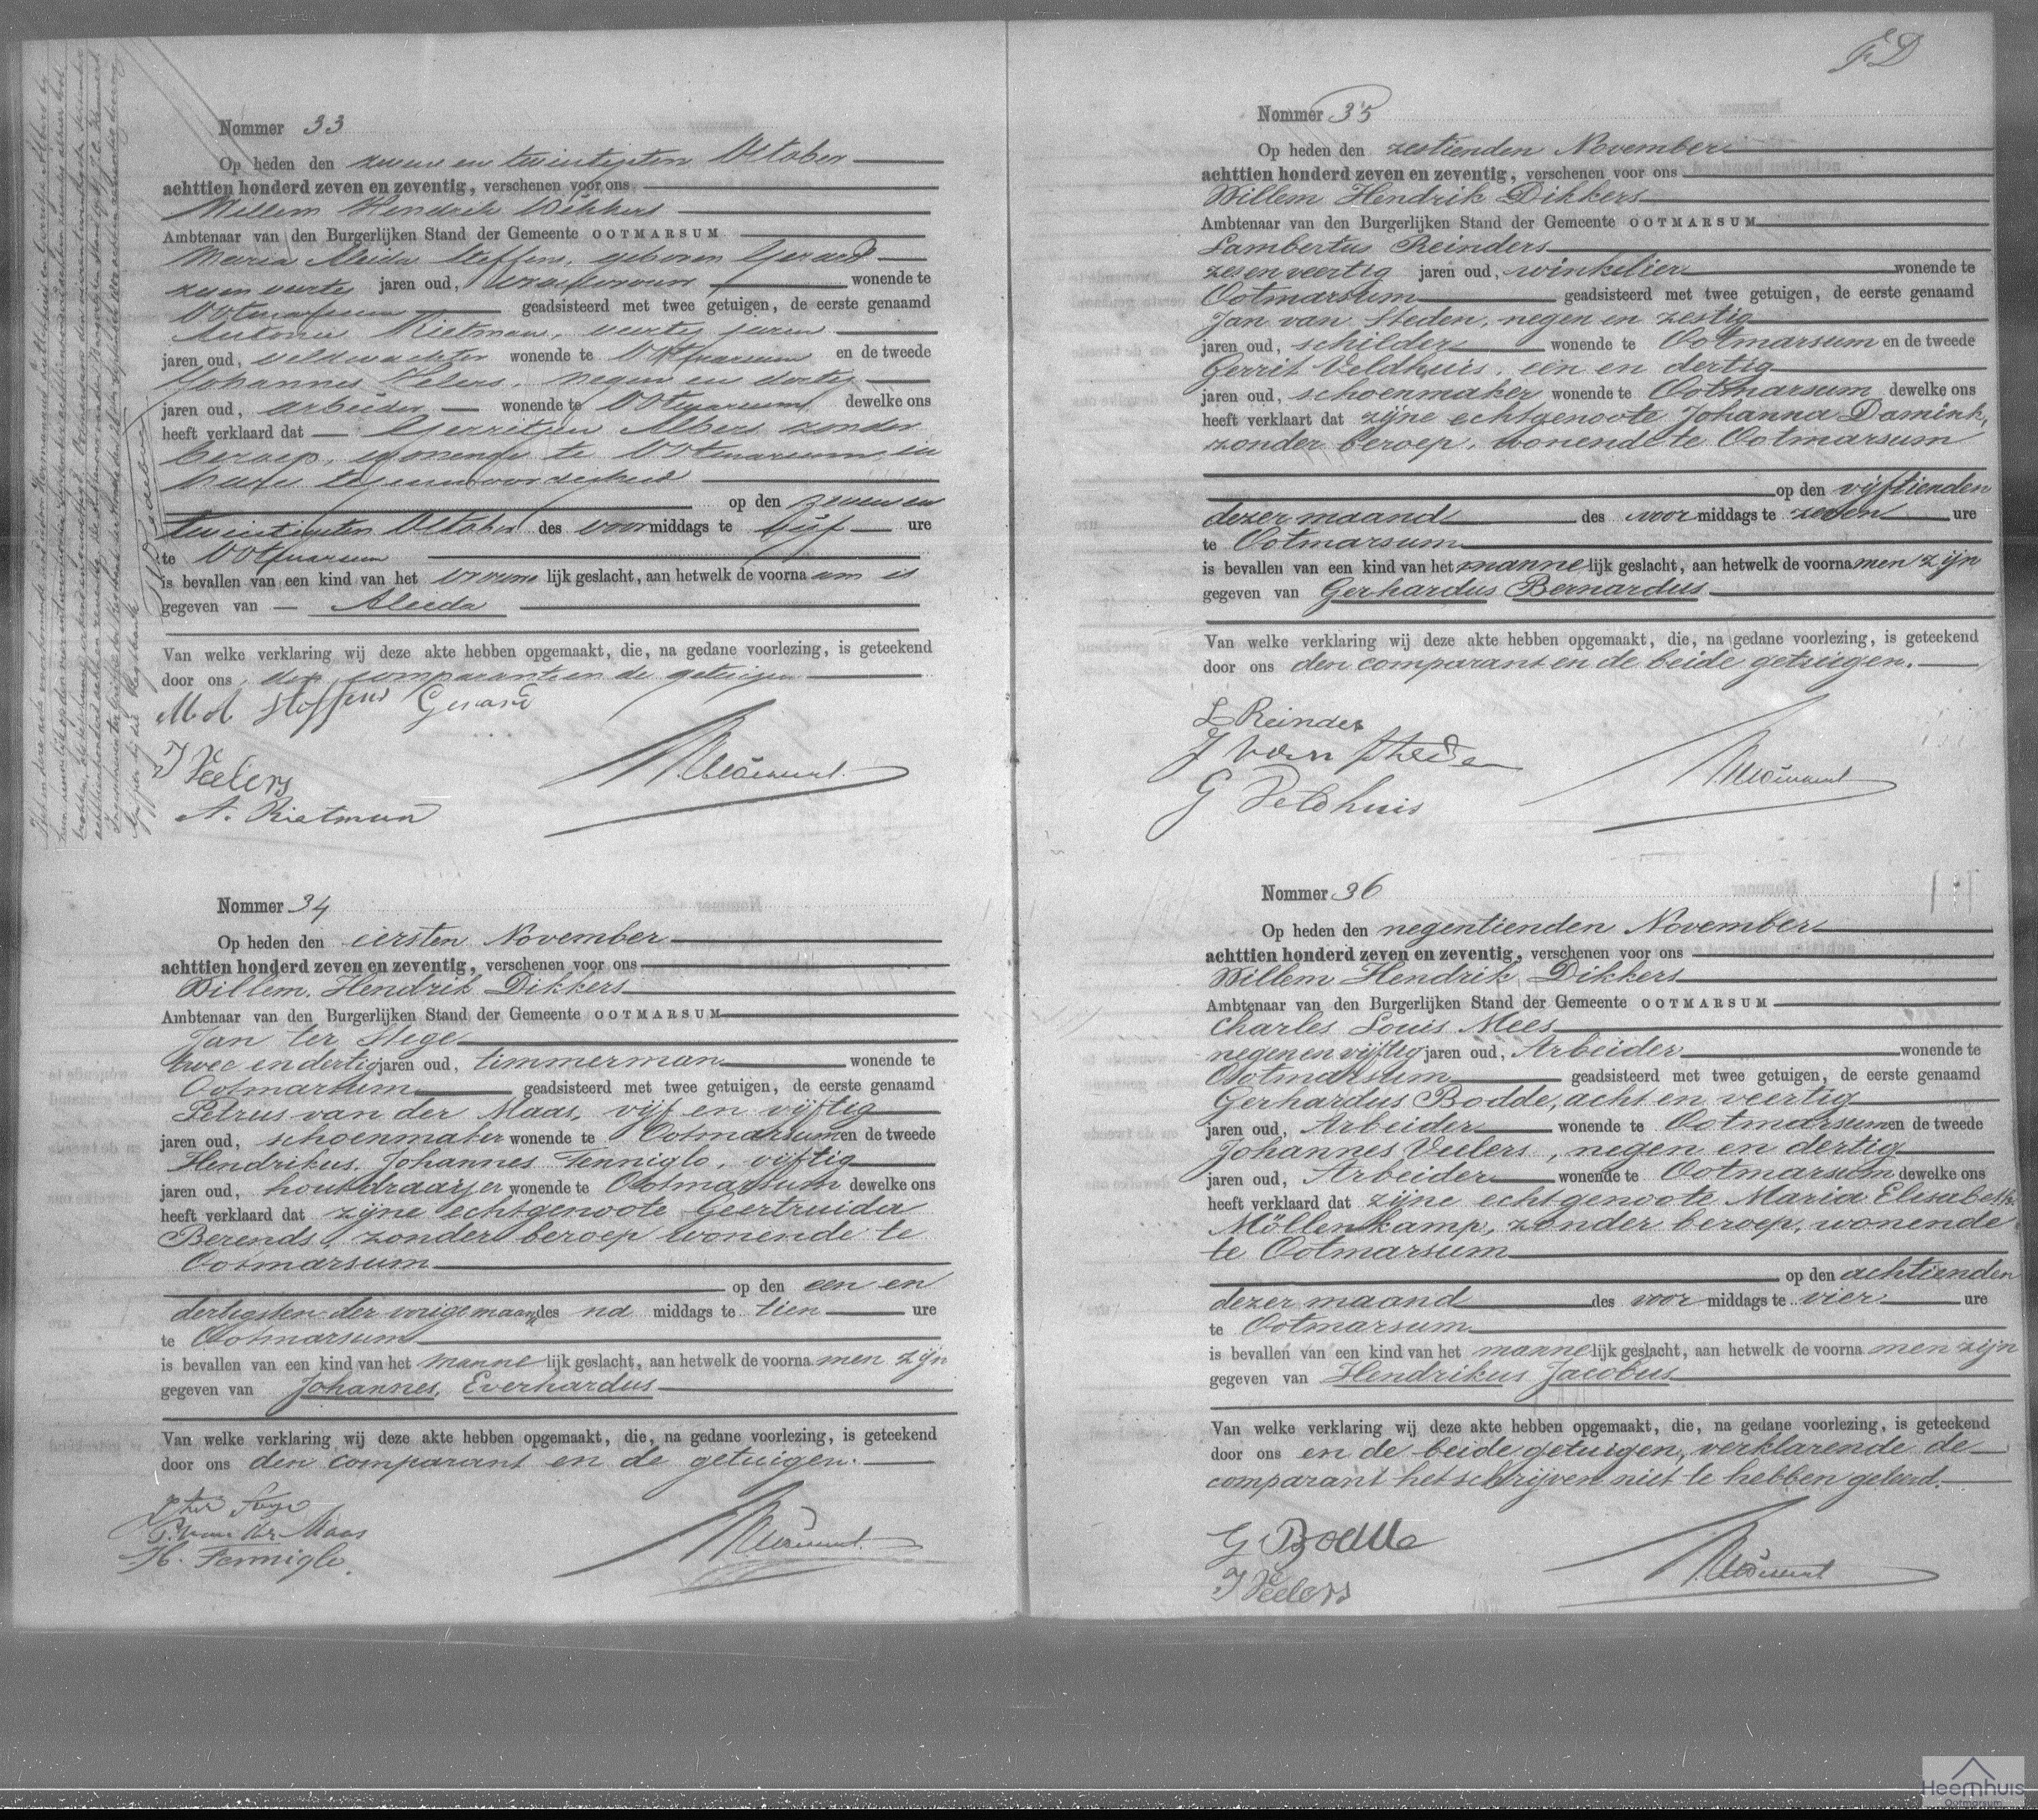 Nommer 33
Op heden den zeven en twintigsten October
achttien honderd zeven en zeventig, verschenen voor ons
Willem Hendrik Dikkers
Ambtenaar van den Burgerlijken Stand der Gemeente OOTMARSUM
Maria Aleida Steffens, geboren Gerard
jaren oud, vroedvrouw wonende te
Ootmarsum geadsisteerd met twee getuigen, de eerste genaamd
Antonie Rietman, veertig jaren
jaren oud, veldwachter wonende te Ootmarsum en de tweede
Johannes Velers, negen en dertig
jaren oud, arbeider wonende te Ootmarsum dewelke ons
heeft verklaard dat Gerritjen Albers zonder
beroep, wonende te Ootmarsum, in
hare tegenwoordigheid
op den zeven en
twintigsten October des voormiddags te vijf ure
te Ootmarsum
is bevallen van een kind van het vrouwelijk geslacht, aan hetwelk de voorna am is
gegeven van Aleida
Van welke verklaring wij deze akte hebben opgemaakt, die, na gedane voorlezing, is geteekend
door ons, de comparante en de getuigen
M A Steffens Gerard
J Veelers
A. Rietman
Nommer 34
Op heden den eersten November
achttien honderd zeven en zeventig, verschenen voor ons
Willem Hendrik Dikkers
Ambtenaar van den Burgerlijken Stand der Gemeente OOTMARSUM
Jan ter Stege
twee en dertig jaren oud, timmerman wonende te
Ootmarsum geadsisteerd met twee getuigen, de eerste genaamd
Petrus van der Maas, vijf en vijftig
jaren oud, schoenmaker wonende te Ootmarsum en de tweede
Hendrikus Johannes Fenniglo, vijftig
jaren oud, houtdraaijer wonende te Ootmarsum dewelke ons
heeft verklaard dat zijne echtgenoote Geertruida
Berends, zonder beroep wonende te
Ootmarsum
op den een en
dertigsten der vorige maand des na middags te tien ure
te Ootmarsum
is bevallen van een kind van het mannelijk geslacht, aan hetwelk de voorna men zijn
gegeven van Johannes, Everhardus
Van welke verklaring wij deze akte hebben opgemaakt, die, na gedane voorlezing, is geteekend
door ons den comparant en de getuigen.
J ter Stege
P. van der Maas
H. Fenniglo.
Nommer 35
Op heden den zestienden November
achttien honderd zeven en zeventig, verschenen voor ons
Willem Hendrik Dikkers
Ambtenaar van den Burgerlijken Stand der Gemeente OOTMARSUM
Lambertus Reinders
zes en veertig jaren oud, winkelier wonende te
Ootmarsum geadsisteerd met twee getuigen, de eerste genaamd
Jan van Steden, negen en zestig
jaren oud, schilder wonende te Ootmarsum en de tweede
Gerrit Veldhuis, een en dertig
jaren oud, schoenmaker wonende te Ootmarsum dewelke ons
heeft verklaart dat zijne echtgenoote Johanna Damink,
zonder beroep, wonende te Ootmarsum
op den vijftienden
dezer maand des voor middags te zeven ure
te Ootmarsum
is bevallen van een kind van het mannelijk geslacht, aan hetwelk de voorna men zijn
gegeven van Gerhardus Bernardus
Van welke verklaring wij deze akte hebben opgemaakt, die, na gedane voorlezing, is geteekend
door ons den comparant en de beide getuigen.
L Reinders
J van Steden
G Veldhuis
Nommer 36
Op heden den negentienden November
achttien honderd zeven en zeventig, verschenen voor ons
Willem Hendrik Dikkers
Ambtenaar van den Burgerlijken Stand der Gemeente OOTMARSUM
Charles Louis Mees
negen en vijftig jaren oud, Arbeider wonende te
Ootmarsum geadsisteerd met twee getuigen, de eerste genaamd
Gerhardus Bodde, acht en veertig
jaren oud, Arbeider wonende te Ootmarsum en de tweede
Johannes Veelers, negen en dertig
jaren oud, Arbeider wonende te Ootmarsum dewelke ons
heeft verklaard dat zijne echtgenoote Maria Elisabeth
Möllenkamp, zonder beroep, wonende
te Ootmarsum
op den achtienden
dezer maand des voor middags te vier ure
te Ootmarsum
is bevallen van een kind van het mannelijk geslacht, aan hetwelk de voorna men zijn
gegeven van Hendrikus Jacobus
Van welke verklaring wij deze akte hebben opgemaakt, die, na gedane voorlezing, is geteekend
door ons en de beide getuigen, verklarende de
comparant het schrijven niet te hebben geleerd.
G Bodde
J Veelers
Heemhuis
Ootmarsum